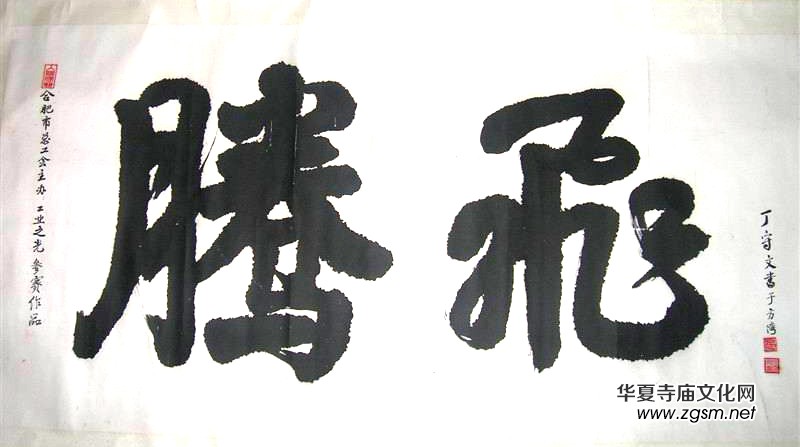 飛騰
丁守文書于方湾
合肥市总工会主办 工业之光 参赛作品
华夏寺庙文化网
www.zgsm.net